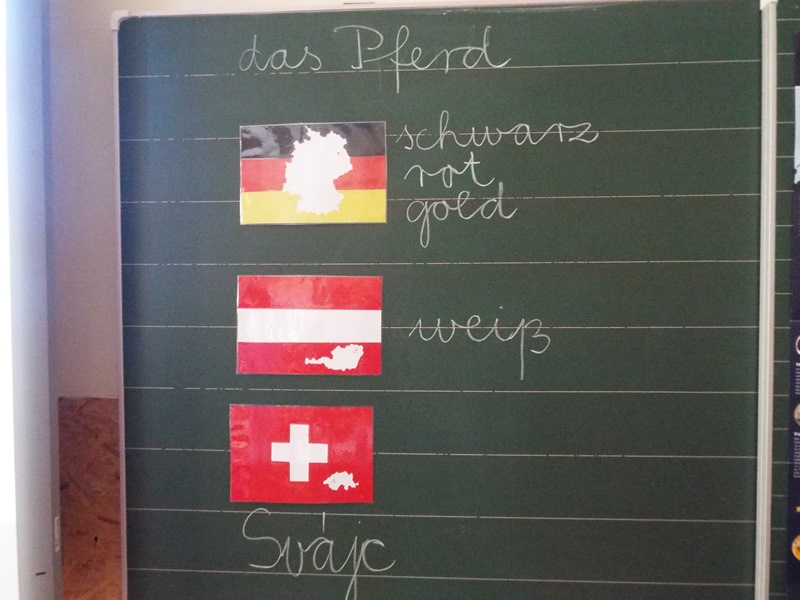 das Pferd
schwarz
rot
gold
weiß
Svájc